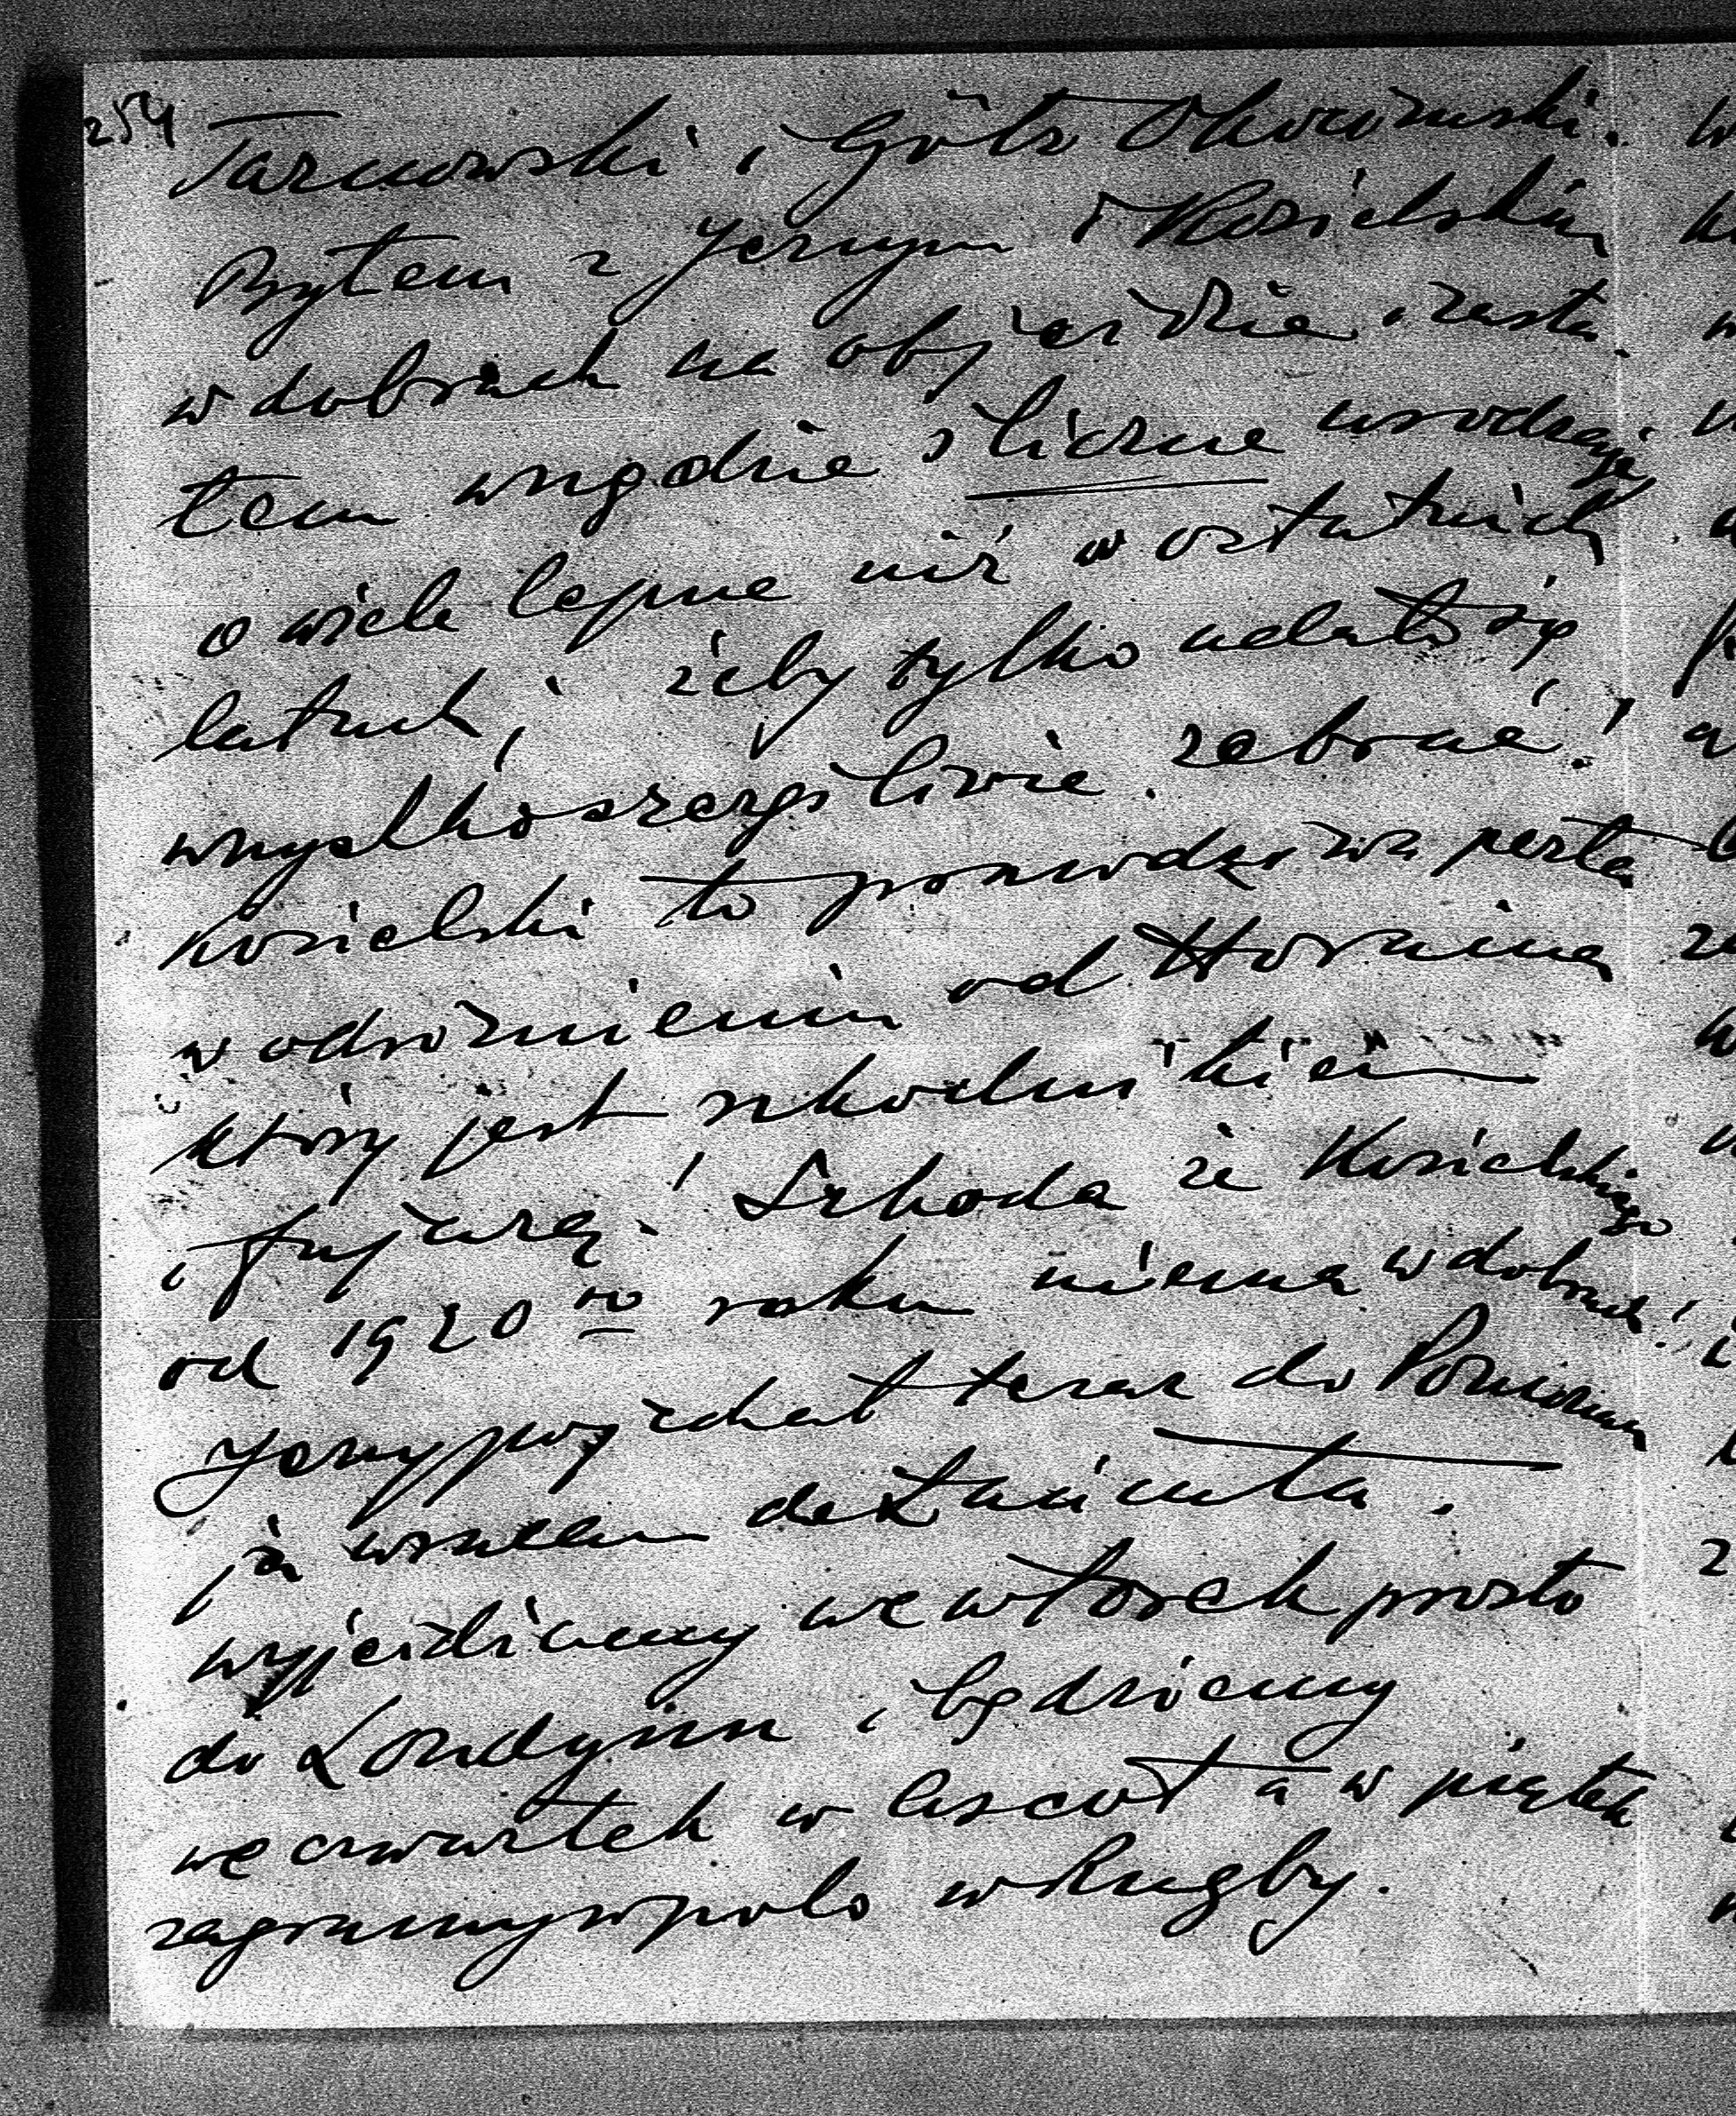 254
Tarnowski i Götz Okocimski.
Byłem z Jerzym i Kosielskim
w dobrach na objeździe i zasta-
łem wszędzie śliczne urodzaje
o wiele lepsze niż w ostatnich
latach, żeby tylko udało się
wszystko szczęśliwie zebrać!
Kosielski to prawdziwa perła
w odróżnieniu od Horaina
który jest szkodnikiem
i fujarą! Szkoda że Kosielskiego
od 1920go roku niema w dobrach!
Jerzy pojechał teraz do Poznania
ja wracam do Łańcuta.
wyjeżdżamy we wtorek prosto
do Londynu i będziemy
we czwartek w Ascot a w piątek
zagramy w polo w Rugby.